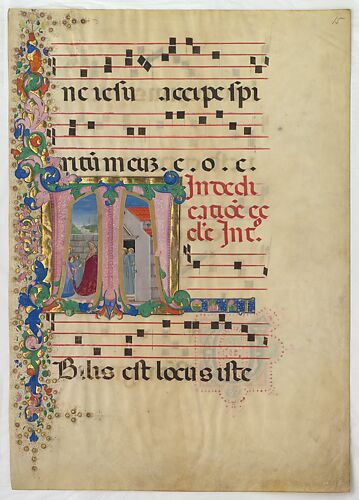 15
ne iesu accipe spi
ritum meuz. e. o. e.
In dedi
catiõe ec
cl'e Int°.
T
Bilis est locus iste